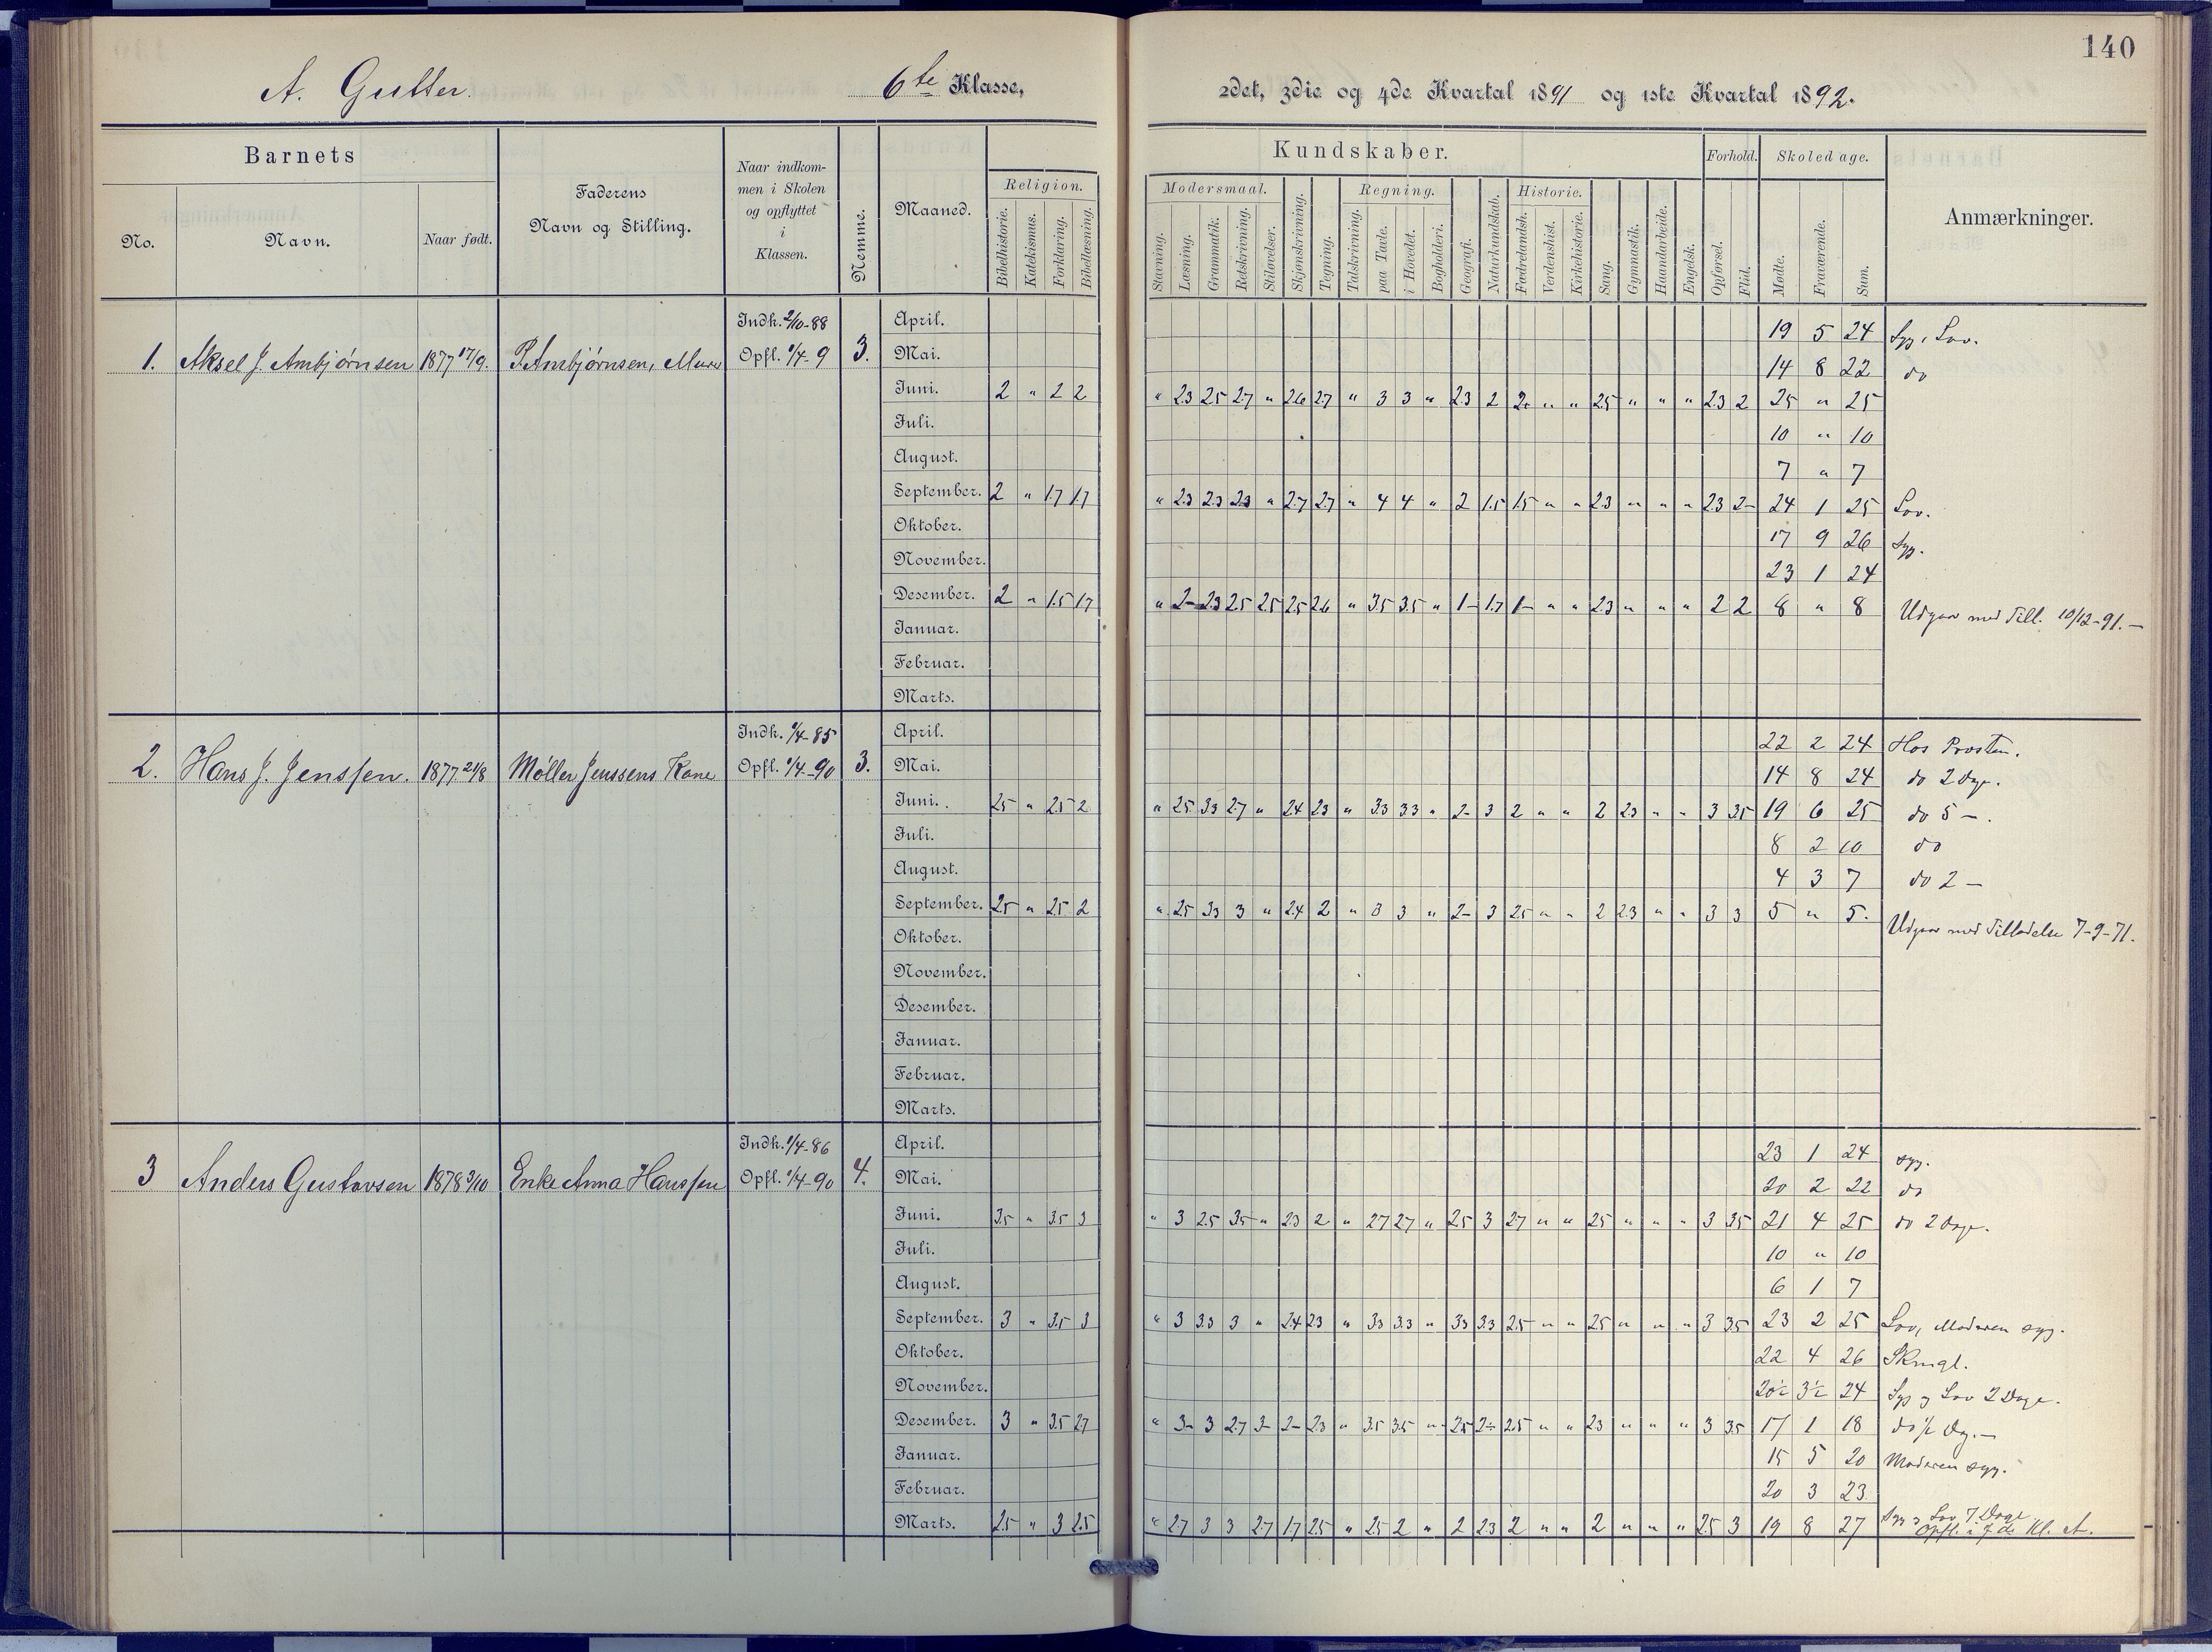 140
A. Gutter. 6te Klasse, 2det, 3die og 4de Kvartal 1891 og 1ste Kvartal 1892.
Barnets
No. Navn. Naar født.
Faderens
Navn og Stilling.
Naar indkom-
men i Skolen
og opflyttet
i
Klassen.
Nemme.
Maaned.
Kundskaber.
Religion.
Bibelhistorie. Katekismus. Forklaring. Bibellæsning.
Modersmaal.
Stavning. Læsning. Grammatik. Retskrivning. Stiløvelser. Skjønskrivning. Tegning.
Regning.
Talskrivning. paa Tavle. i Hovedet. Bogholderi. Geografi. Naturkundskab.
Historie.
Fædrelandsh. Verdenshist. Kirkehistorie. Sang. Gymnastik. Haandarbeide. Engelsk.
Forhold.
Opførsel. Flid.
Skoledage.
Mødte. Fraværende. Sum.
Anmærkninger.
1. Aksel J. Ambjørnsen 1877 17/9. P. Ambjørnsen, Murer
Indk. 2/10-88
Opfl. 1/4-9 3.
April. 19 5 24 Syg, Lov.
Mai. 14 8 22 do
Juni. 2 " 2 2 " 2.3 2.5 2.7 " 2.6 2.7 " 3 3 " 2.3 2 2÷ " " 2.5 " " " 2.3 2 25 " 25
Juli. 10 " 10
August. 7 " 7
September. 2 " 1.7 1.7 " 2.3 2.3 2.3 " 2.7 2.7 " 4 4 " 2 1.5 1.5 " " 2.3 " " " 2.3 2- 24 1 25 Lov.
Oktober. 17 9 26 Syg.
November. 23 1 24
Desember. 2 " 1.5 1.7 " 2- 2.3 2.5 2.5 2.5 2.6 " 3.5 3.5 " 1- 1.7 1- " " 2.3 " " " 2 2 8 " 8 Udgaar med Till. 10/12-91.-
Januar.
Februar.
Marts.
2. Hans J. Jenssen. 1877 21/8 Møller Jenssens Kone
Indk. 1/4-85
Opfl. 1/4-90 3.
April. 22 2 24 Hos Prosten.
Mai. 14 8 24 do 2 Dage.
Juni. 2.5 " 2.5 2 " 2.5 3.3 2.7 " 2.4 2.3 " 3.3 3.3 " 2- 3 2 " " 2 2.3 " " 3 3.5 19 6 25 do 5 -.
Juli. 8 2 10 do
August. 4 3 7 do 2 -
September. 2.5 " 2.5 2 " 2.5 3.3 3 " 2.4 2 " 3 3 " 2- 3 2.5 " " 2 2.3 " " 3 3 5 " 5. Udgaar med Tilladelse 7-9-91.
Oktober.
November.
Desember.
Januar.
Februar.
Marts.
3 Anders Gustavsen 1878 3/10 Enke Anna Hanssen
Indk. 1/4-86
Opfl. 1/4-90 4.
April. 23 1 24 syg.
Mai. 20 2 22 do
Juni. 3.5 " 3.5 3 " 3 2.5 3.5- " 2.3 2 " 2.7 2.7 " 2.5 3 2.7 " " 2.5 " " " 3 3.5 21 4 25 do 2 Dage.
Juli. 10 " 10
August. 6 1 7
September. 3 " 3.5 3 " 3 3.3 3 " 2.4 2.3 " 3.3 3.3 " 3.3 3.3 2.5 " " 2.5 " " " 3 3.5 23 2 25 Lov, Moderen syg.
Oktober. 22 4 26 Skmgl.
November. 20½ 3½ 24 Syg og Lov 2 Dage.
Desember. 3 " 3.5 2.7 " 3- 3 2.7 3- 2- 2.3 " 3.5 3.5 " 2.5 2÷ 2.5 " " 2.3 " " " 3 3.5 17 1 18 do ½ Dag.-
Januar. 15 5 20 Moderen syg.
Februar. 20 3 23
Marts. 2.5 " 3 2.5 " 2.7 3 3 2.7 1.7 2.5 " 2.5 2 " 2 2.3 2 " " 2 " " " 2.5 3 19 8 27 Syg og Lov 7 Dage
Opfl. i 7de Kl. A.